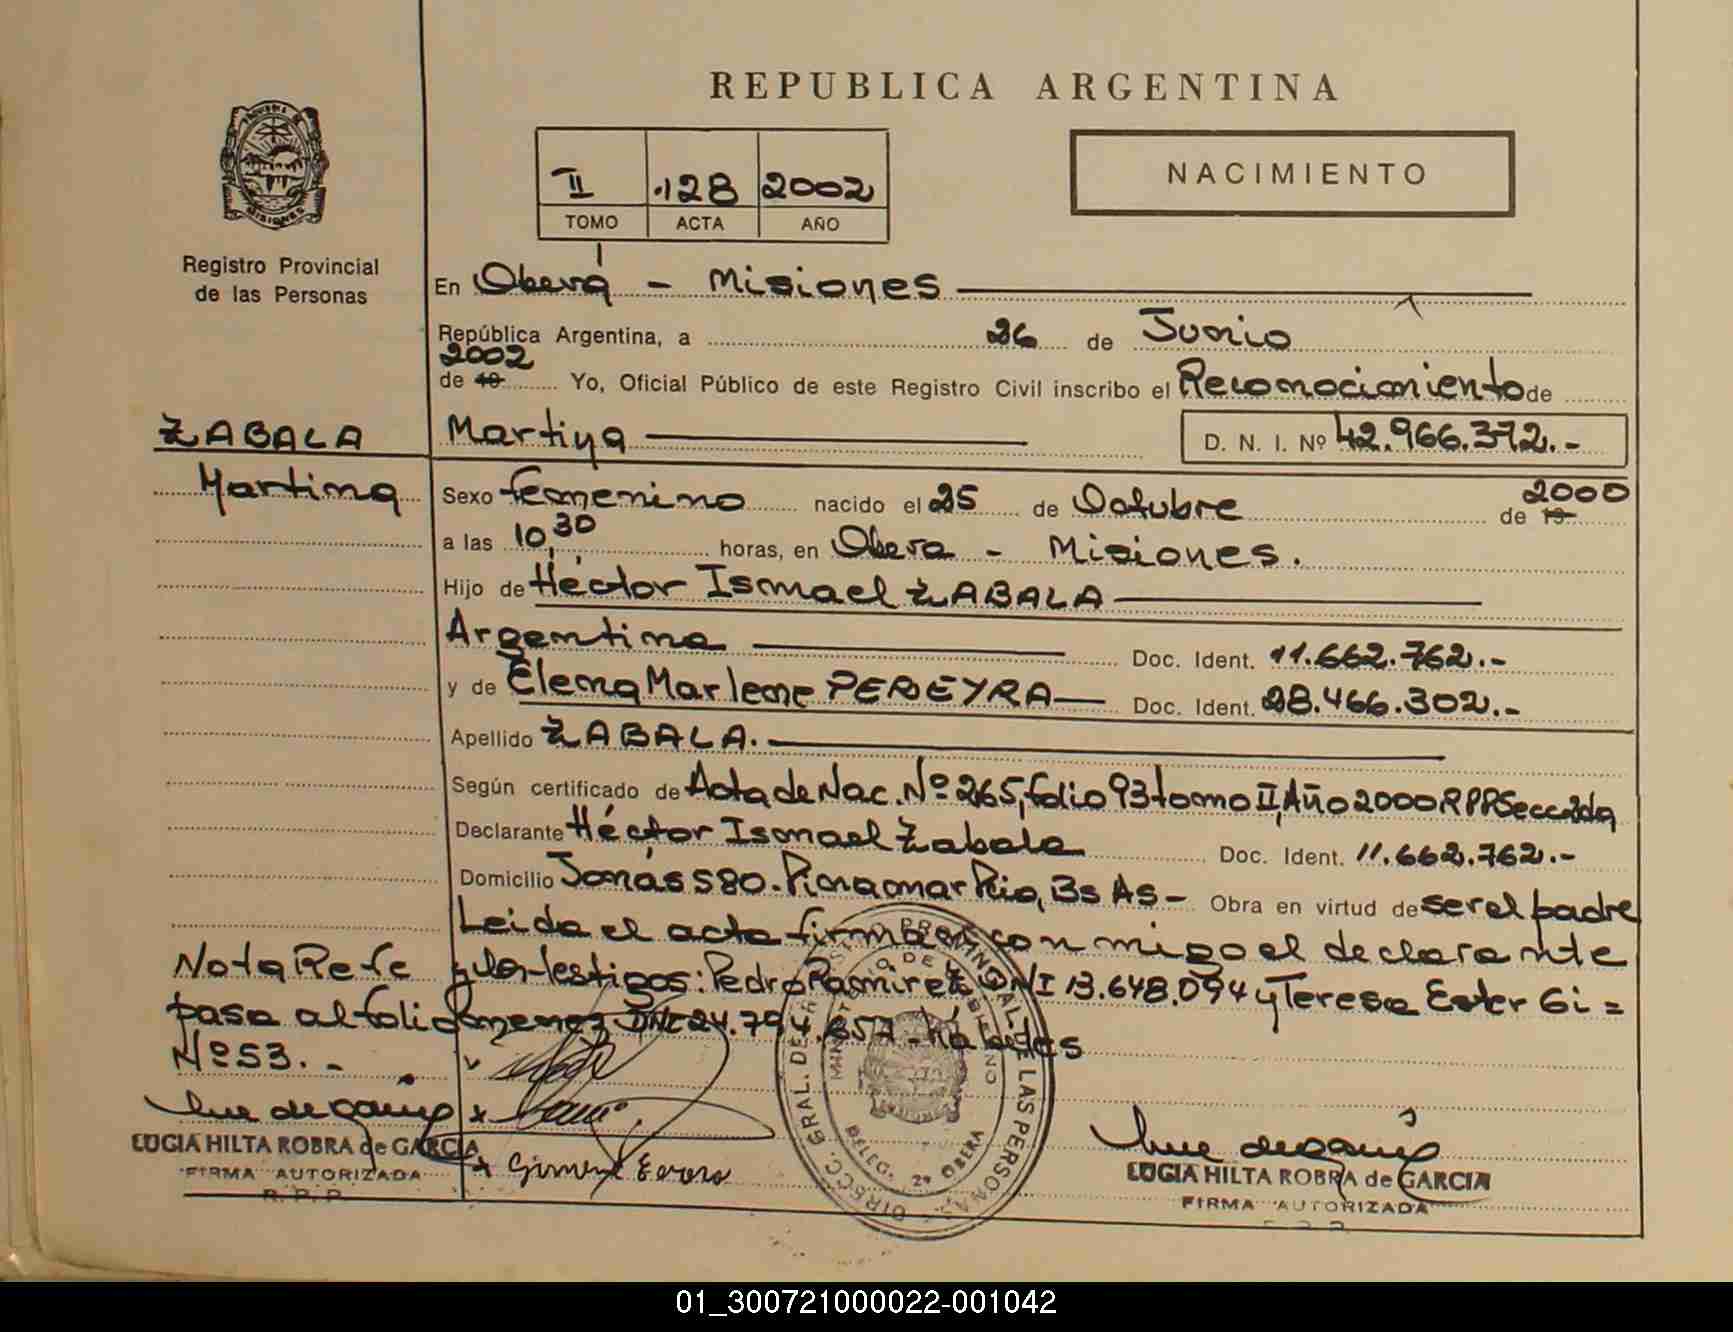 REPUBLICA ARGENTINA
NACIMIENTO
II 128 2002
TOMO ACTA AÑO
MISIONES
Registro Provincial
de las Personas
En Oberá - Misiones
República Argentina, a 26 de Junio
2002
de 19 Yo, Oficial Público de este Registro Civil inscribo el Reconocimiento de
ZABALA Martina D. N. I. Nº 42.966.372.-
Martina
Sexo femenino nacido el 25 de Octubre de 19 2000
a las 10,30 horas, en Obera - Misiones.
Hijo de Héctor Ismael ZABALA
Argentina Doc. Ident. 11.662.762.-
y de Elena Marlene PEREYRA Doc. Ident. 28.466.302.-
Apellido ZABALA.
Según certificado de Acta de Nac. Nº 265, folio 93 tomo II, Año 2000 RPP Secc 2da
Declarante Héctor Ismael Zabala Doc. Ident. 11.662.762.-
Domicilio Jonás 580. Pinamar Bs As - Obra en virtud de ser el padre
Leida el acta firman con migo el declarante
y los testigos: Pedro Ramirez DNI 13.648.094 y Teresa Ester Gi=
menez DNI 24.794.857 - hábiles
Nota Refe
pasa al folio
Nº 53. -
LUCIA HILTA ROBRA de GARCIA
FIRMA AUTORIZADA
R. P. P.
Gimenez
DIRECC. GRAL. DEL REGISTRO PROVINCIAL DE LAS PERSONAS
MINISTERIO DE GOBIERNO
DELEG. 2ª OBERA
LUCIA HILTA ROBRA de GARCIA
FIRMA AUTORIZADA
01_300721000022-001042